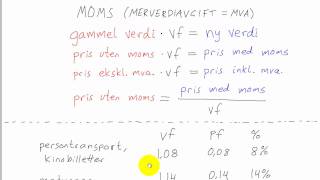 MOMS (MERVERDIAVGIFT = MVA)
gammel verdi · vf = ny verdi
pris uten moms · vf = pris med moms
pris ekskl. mva. · vf = pris inkl. mva.
pris uten moms = pris med moms
vf
vf pf %
persontransport,
kinobilletter 1,08 0,08 8%
1,14 0,14 14%